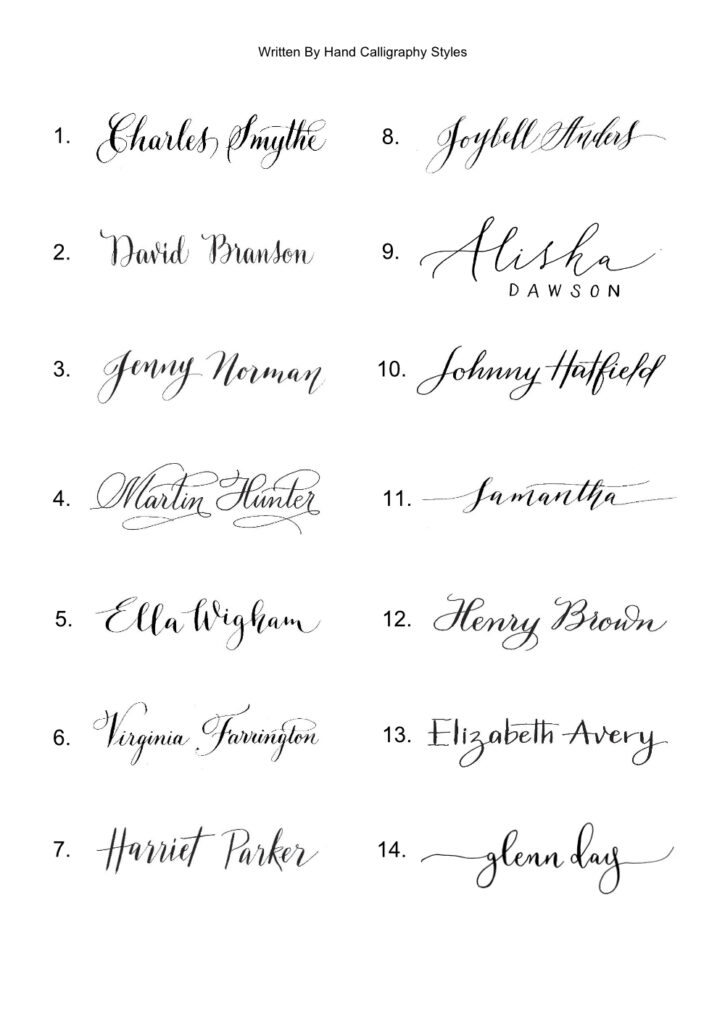 Written By Hand Calligraphy Styles
1. Charles Smythe
2. David Branson
3. Jenny Norman
4. Martin Hunter
5. Ella Wigham
6. Virginia Farrington
7. Harriet Parker
8. Joybell Anders
9. Alisha
DAWSON
10. Johnny Hatfield
11. Samantha
12. Henry Brown
13. Elizabeth Avery
14. glenn day